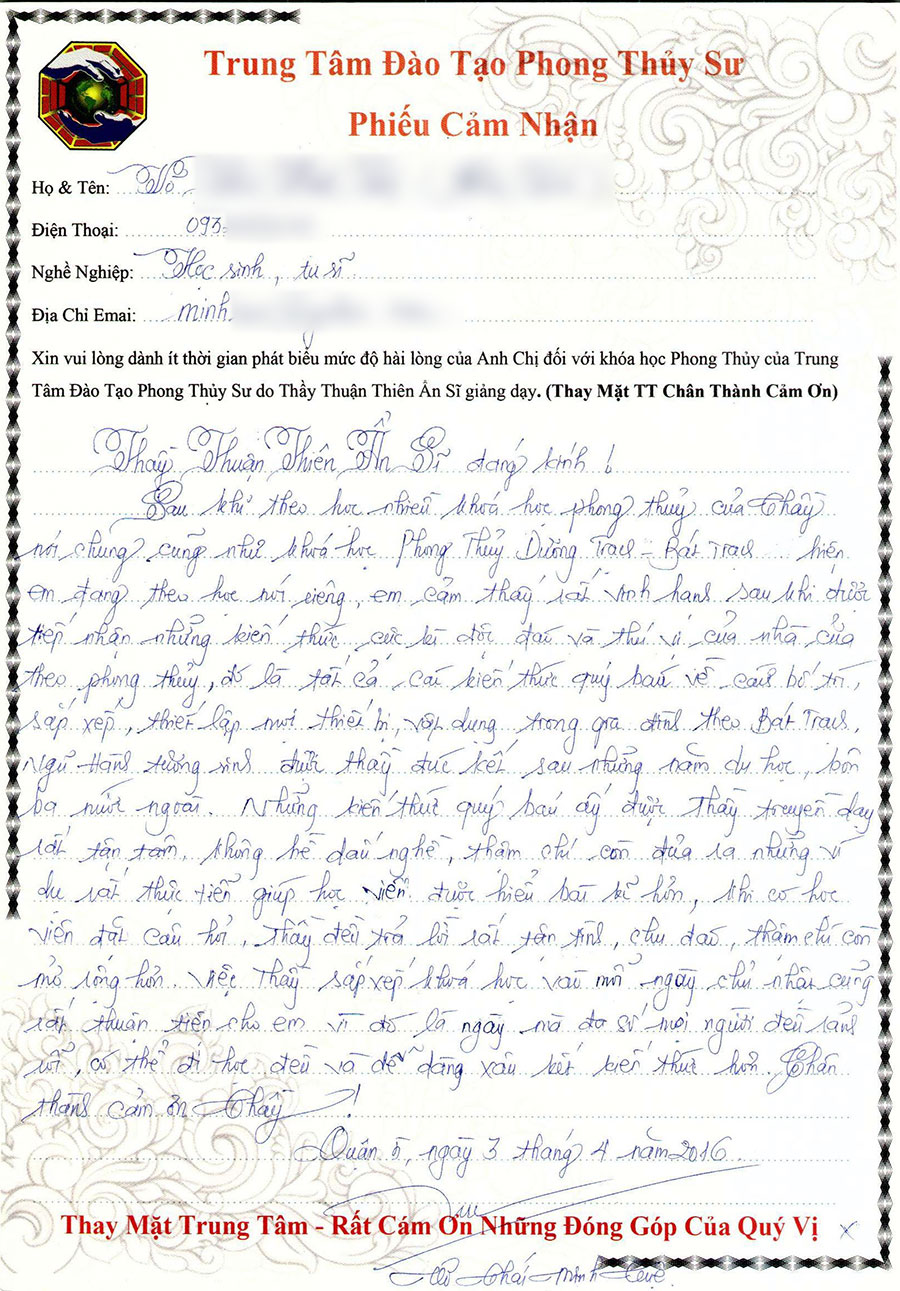 Trung Tâm Đào Tạo Phong Thủy Sư
Phiếu Cảm Nhận
Họ & Tên: Võ
Điện Thoại: 093
Nghề Nghiệp: Học sinh, tu sĩ
Địa Chỉ Emai: minh
Xin vui lòng dành ít thời gian phát biểu mức độ hài lòng của Anh Chị đối với khóa học Phong Thủy của Trung
Tâm Đào Tạo Phong Thủy Sư do Thầy Thuận Thiên Ẩn Sĩ giảng dạy. (Thay Mặt TT Chân Thành Cảm Ơn)
Thầy Thuận Thiên Ẩn Sĩ đáng kính !
Sau khi theo học nhiều khoá học phong thuỷ của Thầy
nói chung cũng như khoá học Phong Thủy Dương Trạch - Bát Trạch hiện
em đang theo học nói riêng, em cảm thấy rất vinh hạnh sau khi được
tiếp nhận những kiến thức cực kì độc đáo và thú vị của nhà cửa
theo phong thuỷ, đó là tất cả các kiến thức quý báu về cách bố trí,
sắp xếp, thiết lập mọi thiết bị, vật dụng trong gia đình theo Bát Trạch,
Ngũ Hành tương sinh được thầy đúc kết sau những năm du học, bôn
ba nước ngoài. Những kiến thức quý báu ấy được Thầy truyền dạy
rất tận tâm, không hề dấu nghề, thậm chí còn đưa ra những ví
dụ rất thực tiễn giúp học viên được hiểu bài kĩ hơn, khi có học
viên đặt câu hỏi, Thầy đều trả lời rất tận tình, chu đáo, thậm chí còn
mở rộng hơn. Việc Thầy sắp xếp khoá học vào mỗi ngày chủ nhật cũng
rất thuận tiện cho em vì đó là ngày mà đa số mọi người đều rảnh
rỗi, có thể đi học đều và dễ dàng xâu kết kiến thức hơn. Chân
thành cảm ơn Thầy !
Quận 5, ngày 3 tháng 4 năm 2016
Thay Mặt Trung Tâm - Rất Cám Ơn Những Đóng Góp Của Quý Vị
Võ Thái Minh